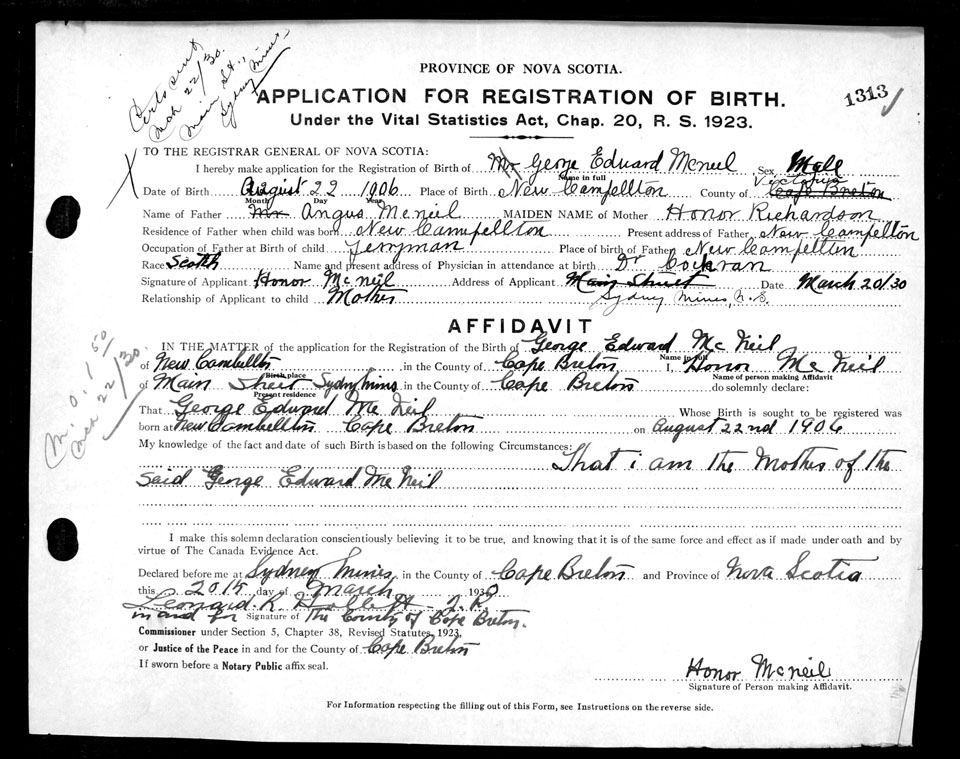 Certo sent
Mch 22/30.
Main St.,
Sydney Mines
PROVINCE OF NOVA SCOTIA.
APPLICATION FOR REGISTRATION OF BIRTH.
1313
Under the Vital Statistics Act, Chap. 20, R. S. 1923.
X TO THE REGISTRAR GENERAL OF NOVA SCOTIA:
I hereby make application for the Registration of Birth of Mr George Edward Mcneil Sex Mall
Name in full Victoria
Date of Birth August 22 1906 Place of Birth New Campellton County of Cape Breton
Month Day Year
Name of Father Mr Angus Mcneil MAIDEN NAME of Mother Honor Richardson
Residence of Father when child was born New Campellton Present address of Father New Campellton
Occupation of Father at Birth of child Ferryman Place of birth of Father New Campellton
Race Scotch Name and present address of Physician in attendance at birth Dr Cochran
Signature of Applicant Honor McNeil Address of Applicant Main Street Date March 20/30
Relationship of Applicant to child Mother Sydney Mines, N.S.
AFFIDAVIT
M.O. 1 50
Mch 22/30.
IN THE MATTER of the application for the Registration of the Birth of George Edward Mc Neil
Name in full
of New Cambellton in the County of Cape Breton I, Honor Mc Neil
Birth place Name of person making Affidavit
of Main Street Sydney Mines in the County of Cape Breton do solemnly declare:
Present residence
That George Edward Mc Neil Whose Birth is sought to be registered was
born at New Cambellton Cape Breton on August 22nd 1906
My knowledge of the fact and date of such Birth is based on the following Circumstances: That i am the Mother of the
said George Edward Mc Neil
I make this solemn declaration conscientiously believing it to be true, and knowing that it is of the same force and effect as if made under oath and by
virtue of The Canada Evidence Act.
Declared before me at Sydney Mines in the County of Cape Breton and Province of Nova Scotia
this 20th day of March 1930
Leonard R J.P.
in and for Signature of The County of Cape Breton.
Commissioner under Section 5, Chapter 38, Revised Statutes, 1923,
or Justice of the Peace in and for the County of Cape Breton
If sworn before a Notary Public affix seal.
Honor Mcneil
Signature of Person making Affidavit.
For Information respecting the filling out of this Form, see Instructions on the reverse side.